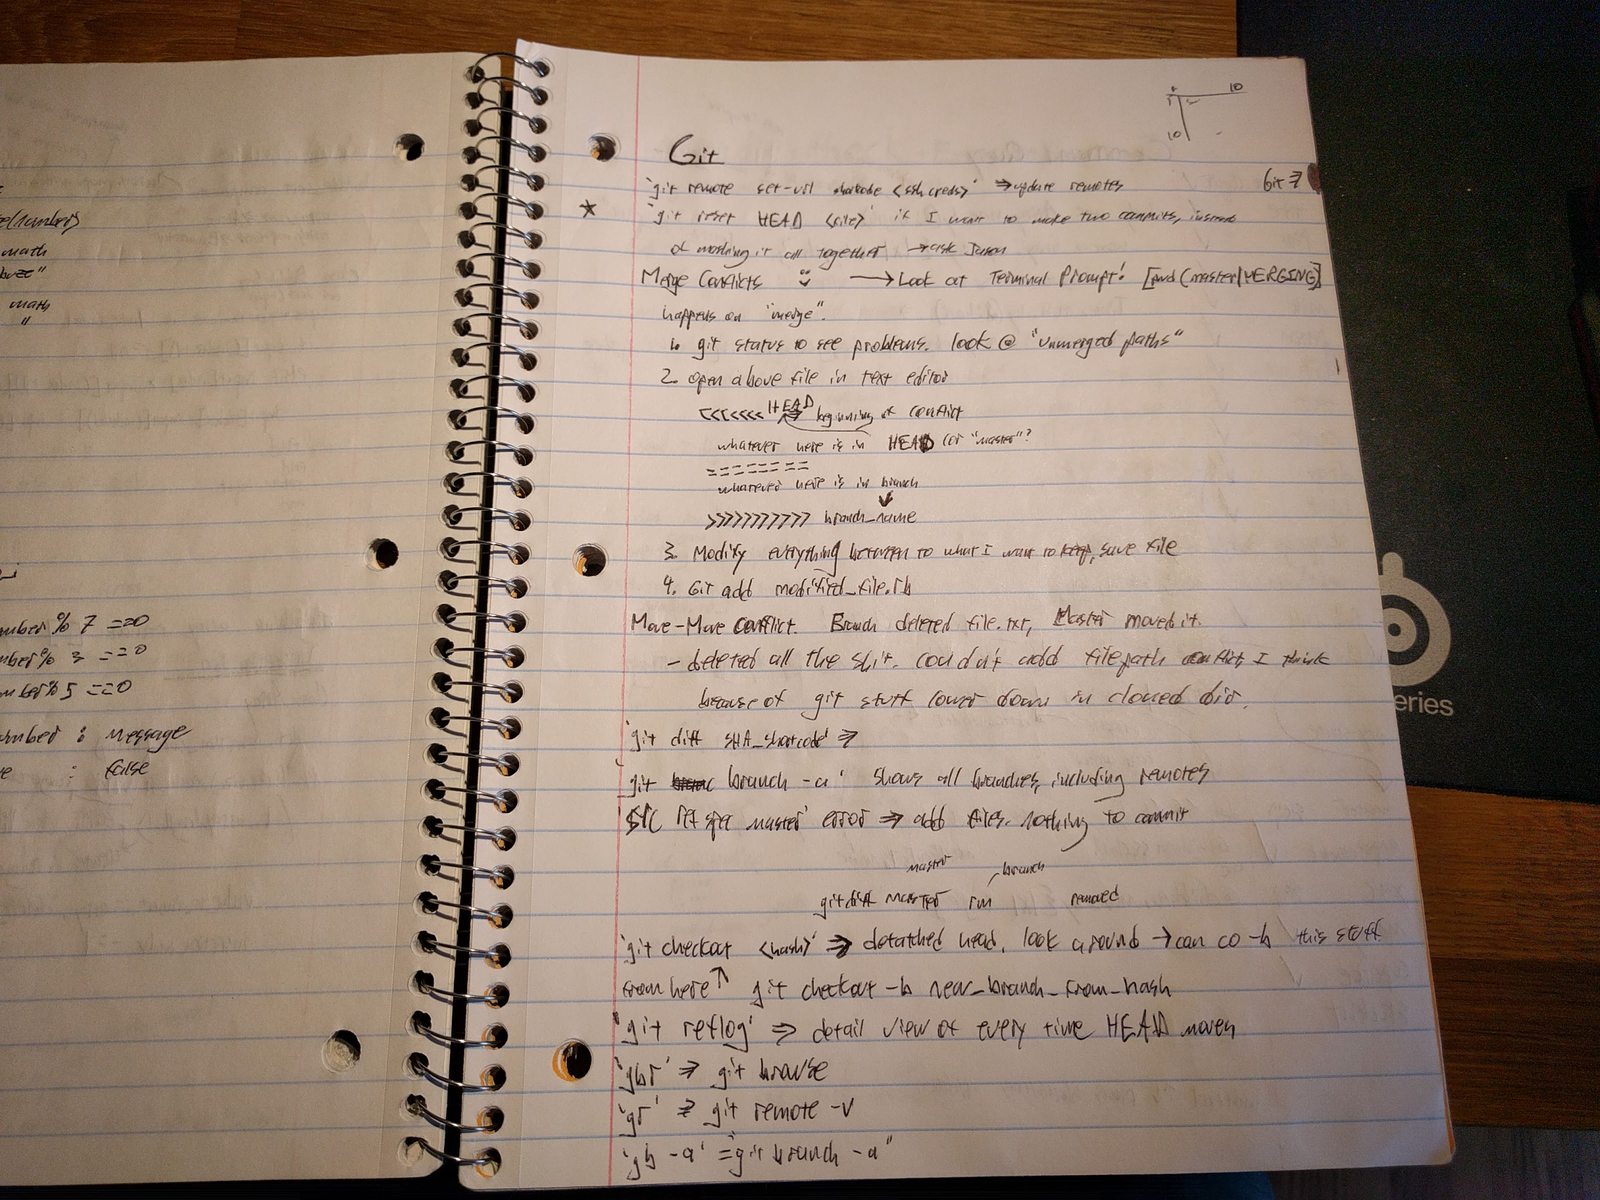 math
math
"
% 7 ==0
% 3 ==0
% 5 ==0
: message
: false
10
10
Git
'git remote set-url <ssh creds>' => update remotes
Git
* 'git reset HEAD <file>' if I want to make two commits, instead
of mashing it all together → ask Jason
Merge Conflicts → Look at Terminal Prompt! [pwd (master|MERGING]
happens on "merge".
1. git status to see problems. look @ "unmerged paths"
2. open above file in text editor
<<<<<<< HEAD beginning of conflict
whatever here is in HEAD (or "master"?
=======
whatever here is in branch
>>>>>>>>>>> branch_name
3. Modify everything between to what I want to keep, save file
4. Git add modified_file.rb
Move-Move conflict. Branch deleted file.txt, Master moved it.
- deleted all the shit. couldn't add filepath conflict I think
because of git stuff lower down in cloned dir.
'git diff SHA_shortcode' =>
'git branch -a' shows all branches, including remotes
src ref spec master error => add files. nothing to commit
master branch
git diff master rm removed
'git checkout <hash>' => detatched head. look around → can co -b this stuff
from here ↑ git checkout -b new_branch_from_hash
'git reflog' => detail view of every time HEAD moves
'gbr' => git browse
'gr' => git remote -v
'gb -a' = "git branch -a"
eries